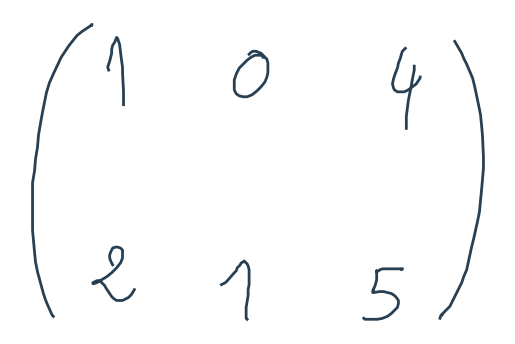 1 0 4
2 1 5